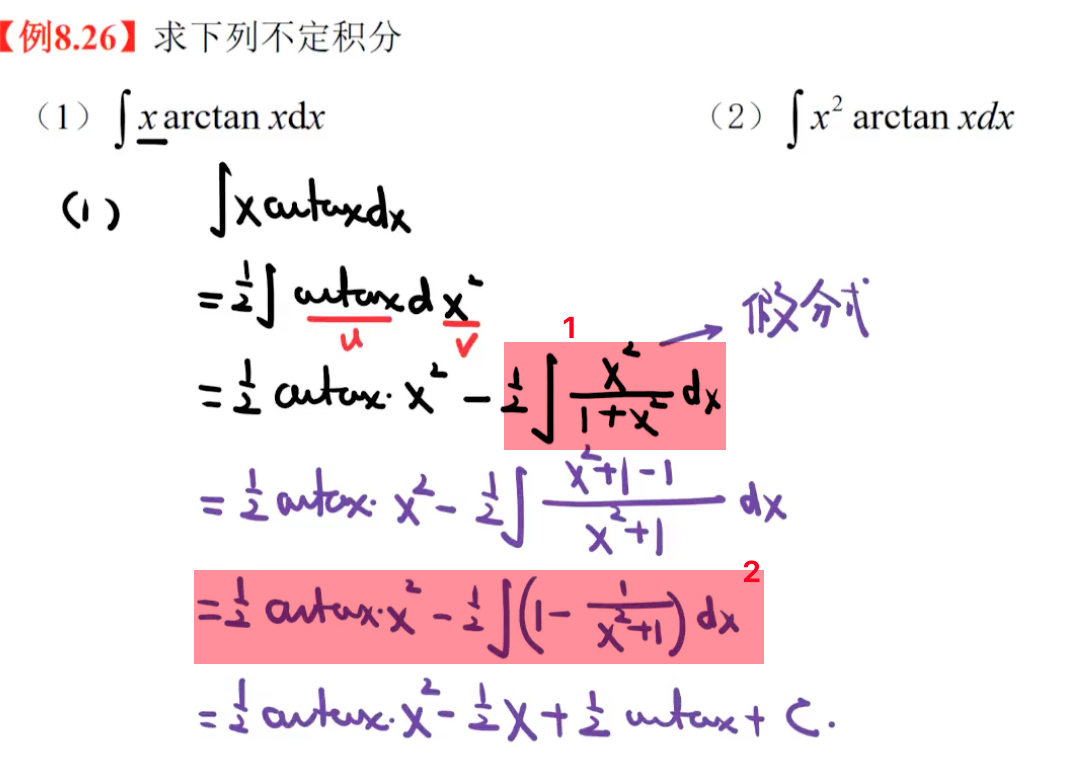 【例8.26】求下列不定积分
（1）∫x arctan xdx （2）∫x² arctan xdx
(1) ∫x arctanx dx
=½∫ arctanx d x²
u v 1 假分式
=½ arctanx· x² - ½∫ x²/(1+x²) dx
=½ arctanx· x² - ½∫ (x²+1-1)/(x²+1) dx
2
=½ arctanx·x² - ½∫(1 - 1/(x²+1)) dx
=½ arctanx·x² - ½x + ½ arctanx + C.